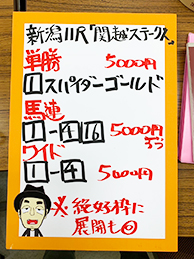 新潟11R「関越ステークス」
単勝 5000円
1スパイダーゴールド
馬連
1-4 16 5000円ずつ
ワイド
1-4 5000円
※絶好枠に
展開も◎